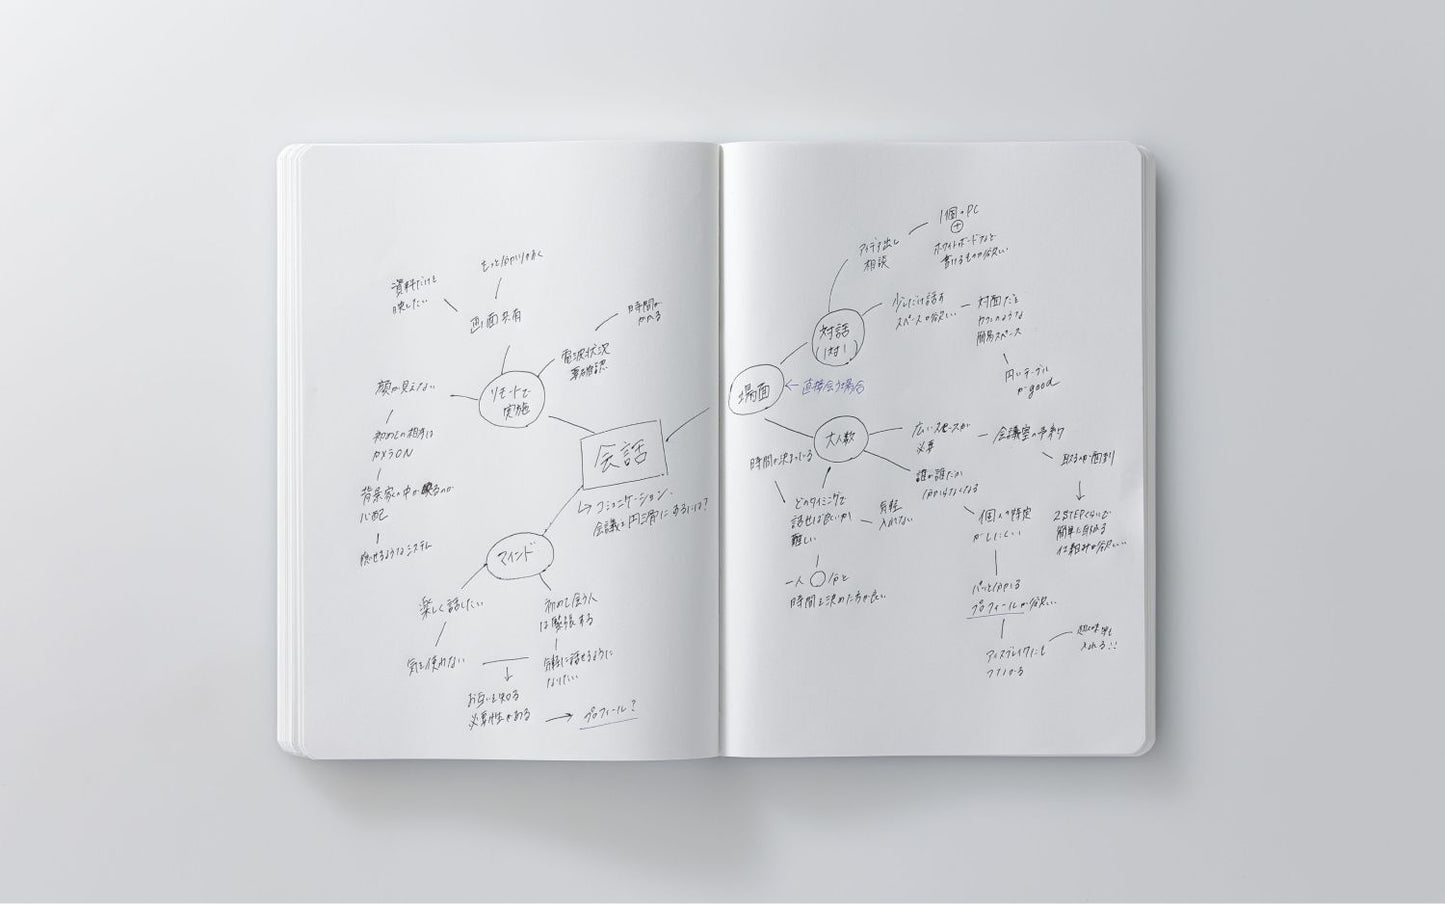 もっと分かりやすく
資料だけを
映したい
画面共有
時間が
かかる
電波状況
事前確認
顔が見えない
リモートで
実施
初めての相手は
カメラON
会話
背景家の中が映るのが
心配
↳コミュニケーション、
会議を円滑にするには?
隠せるようなシステム
マインド
楽しく話したい
初めて会う人
は緊張する
気を使わない
気軽に話せるように
なりたい
お互いを知る
必要性がある
プロフィール?
1個・PC
+
アイデア出し
相談
ホワイトボードなど
書けるものが欲しい
少しだけ話す
スペースが欲しい
対面だと
カフェのような
簡易スペース
対話
(1対1)
円いテーブル
がgood
場面
←直接会う場合
大人数
広いスペースが
必要
会議室の予約
取るのが面倒
時間が決まっている
誰が誰だか
分からなくなる
どのタイミングで
話せば良いか
難しい
気軽
入れない
個人の特定
がしにくい
2STEPくらいで
簡単に取れる
仕組みが欲しい
一人○分と
時間を決めた方が良い
パッと分かる
プロフィールが欲しい
アイスブレイクにも
つながる
趣味等も
入れる!!